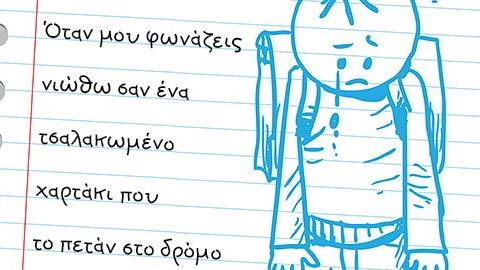 Όταν μου φωνάζεις
νιώθω σαν ένα
τσαλακωμένο
χαρτάκι που
το πετάν στο δρόμο